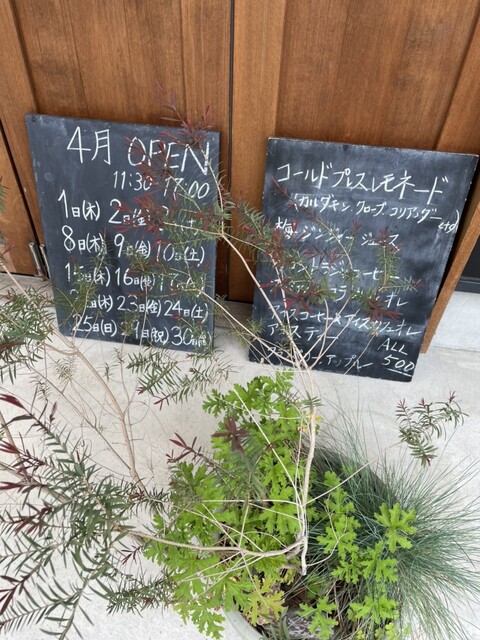 4月 OPEN
11:30 17:00
1日(木) 2日(金) (土)
8日(木) 9日(金) 10日(土)
15日(木) 16日(金) 17日(土)
日(木) 23日(金) 24日(土)
25日(日) 29日(祝) 30日(金)
コールドプレスレモネード
(カルダモン, クローブ, コリアンダー etc)
梅ジンジャージュース
コーヒー
オレ
アイスコーヒー&アイスカフェオレ
アイスティー ALL
アップル 500